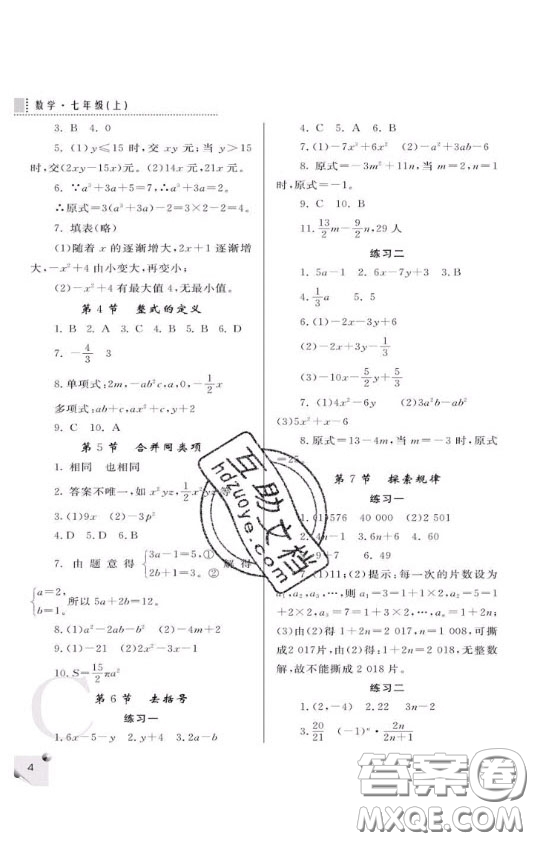 数学·七年级(上)
3. B  4. 0
5. (1)y≤15时,交 xy 元;当 y>15
时,交(2xy−15x)元.(2)14x 元,21x 元.
6. ∵a²+3a+5=7,∴a²+3a=2.
∴原式=3(a²+3a)−2=3×2−2=4.
7. 填表(略)
(1)随着 x 的逐渐增大,2x+1 逐渐增
大,−x²+4 由小变大,再变小;
(2)−x²+4 有最大值 4,无最小值.
第 4 节  整式的定义
1. B  2. A  3. C  4. B  5. B  6. D
7. −4/3  3
8. 单项式:2m,−ab²c,a,0,−1/2 x
多项式:ab+c,ax²+c,y+2
9. C  10. A
第 5 节  合并同类项
1. 相同  也相同
2. 答案不唯一,如 x²yz, 1/2 x²yz 等
3. (1)9x  (2)−3p²
4. C  5. B  6. D
7. 由 题 意 得 {3a−1=5,① 2b+1=3.② 解 得
{a=2, b=1. 所以 5a+2b=12.
8. (1)a²−2ab−b²  (2)−4m²−4
9. (1)−21x  (2)−3x³−x
10. S=15/2 πa²
第 6 节  去括号
练习一
1. 6x−5−y  2. y+4  3. 2a−b
4. C  5. A  6. B
7. (1)−7x²+6x²  (2)−a²+3ab−6
8. 原式=−3m²+11n,当 m=2,n=1
时,原式=−1.
9. C  10. B
11. 13/2 m−9/2 n,29 人
练习二
1. 5a−1  2. 6x−7y+3  3. B
4. 1/3 a  5. D
6. (1)−2x−3y+6
(2)−2x+3y−1/3
(3)−10x−5/2 y+5/2 z
7. (1)4x²+3x−2  (2)−ab
(3)5x²+x−6
8. 原式=13−4m,当 m=−3 时,原式
=25.
第 7 节  探索规律
练习一
1. (1)576  40 000  (2)2 501
4. n²+9=9  6. 49
7. (1)11;(2)提示:每一次的片数设为
a₁,a₂,a₃,…,则 a₁=3=1+1×2,a₂=5=1+
2×2,a₃=7=1+3×2,…,aₙ=1+2n;
(3)由(2)得 1+2n=2 017,n=1 008,可撕
成 2 017 片.由(2)得:1+2n=2 018,无整数
解,故不能撕成 2 018 片.
练习二
1. (2,−4)  2. 22  3n−2
3. 20/21  (−1)ⁿ·2n/2n+1
4
互助文档
hdzuoye.com
C
答案卷
MXQE.COM